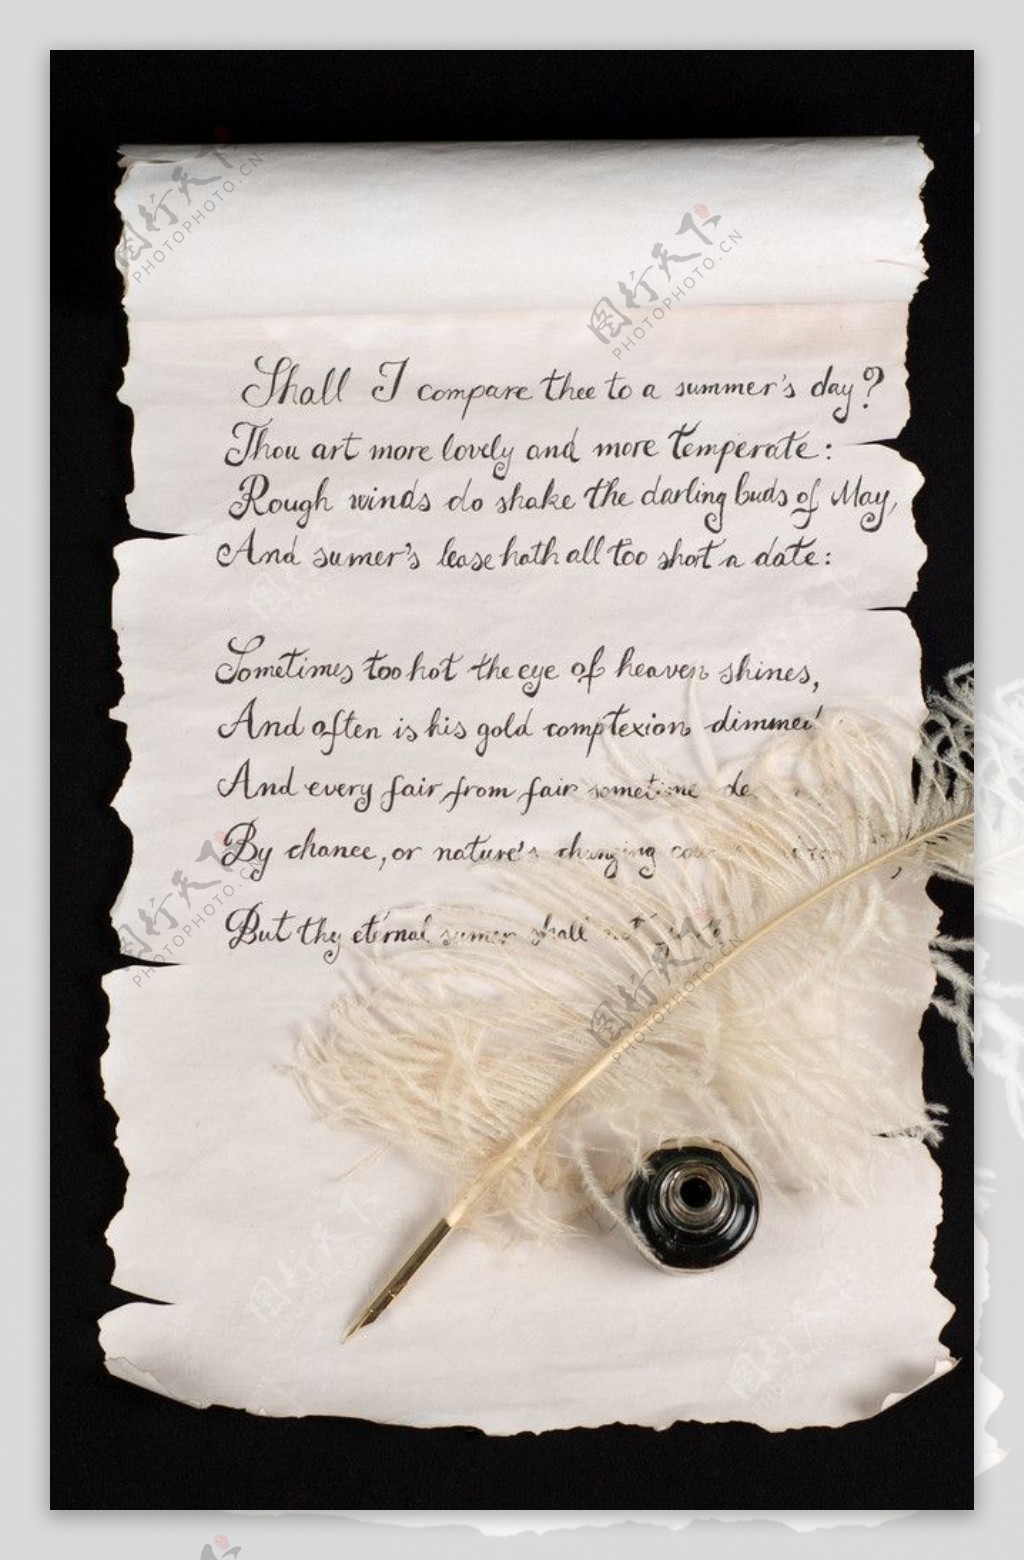 Shall I compare thee to a summer's day?
Thou art more lovely and more temperate:
Rough winds do shake the darling buds of May,
And sumer's lease hath all too short a date:
Sometimes too hot the eye of heaven shines,
And often is his gold complexion dimmed
And every fair from fair sometime
By chance, or nature's changing
But thy eternal sumer shall not
图行天下
PHOTOPHOTO.CN
图行天下
PHOTOPHOTO.CN
图行天下
PHOTOPHOTO.CN
图行天下
PHOTOPHOTO.CN